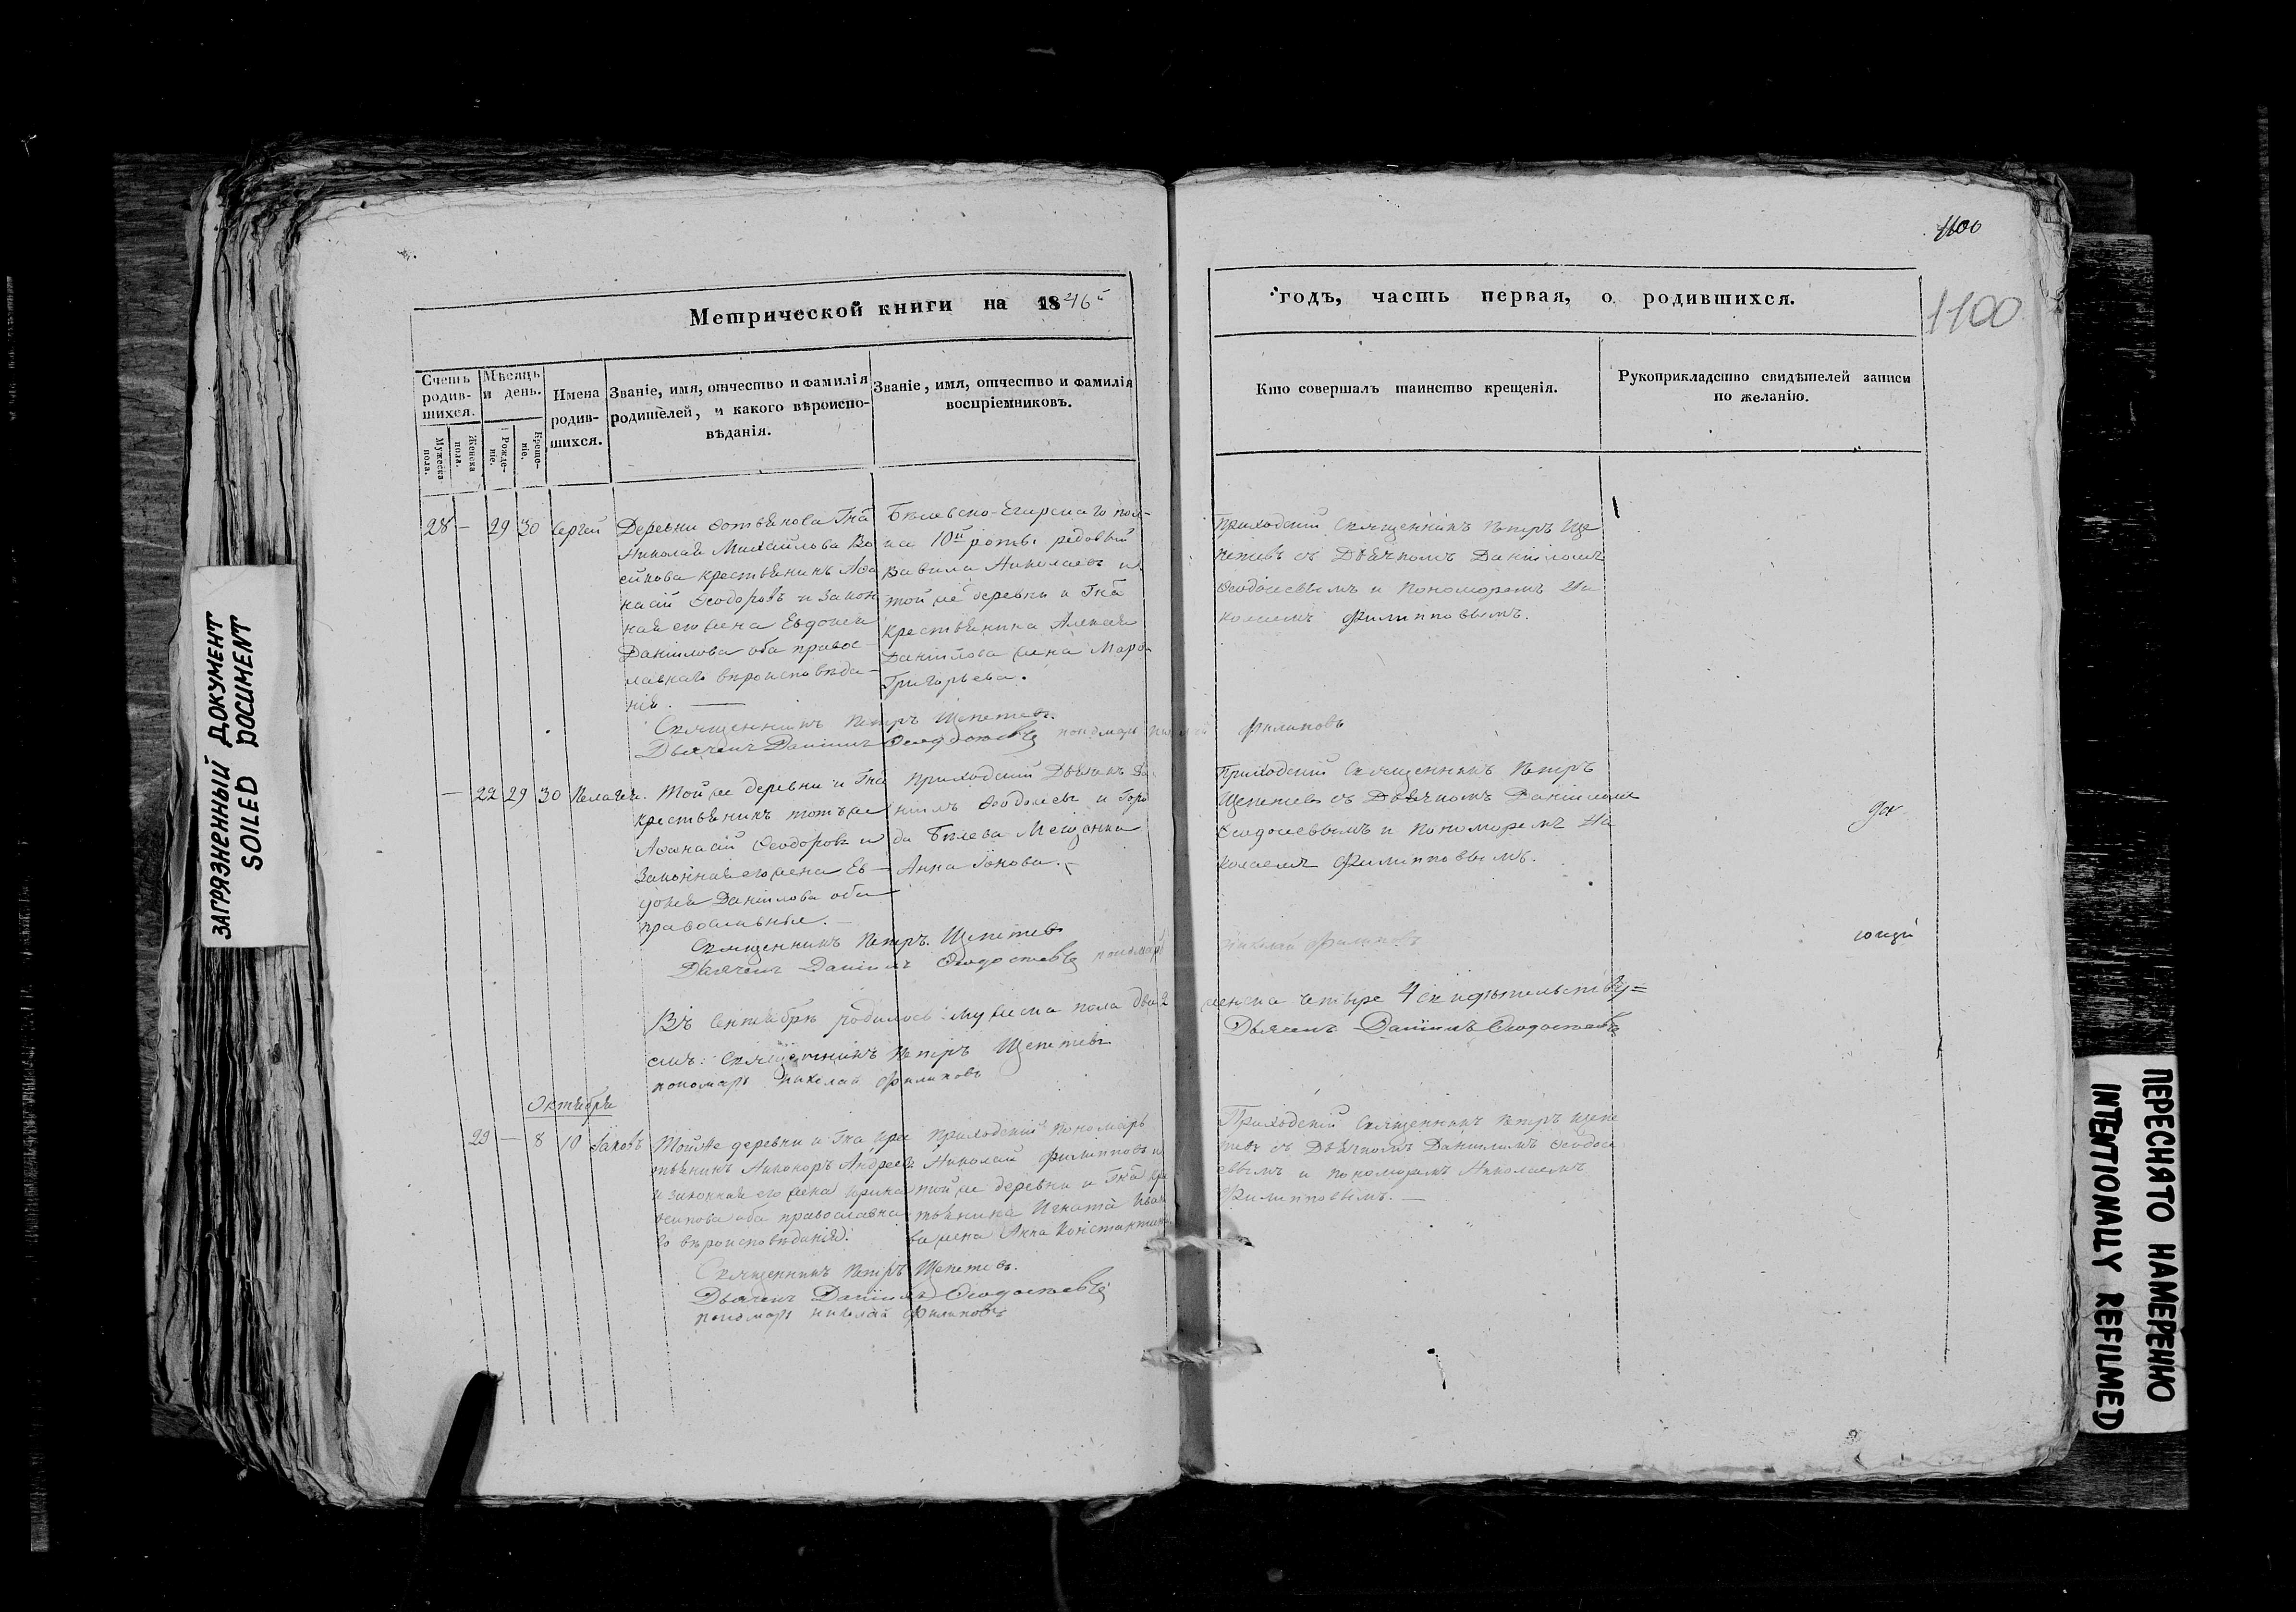 1100
1100
Метрической книги на 1846й
годъ, часть первая, о родившихся.
Счетъ родив-шихся.
Мѣсяцъ и день.
Имена родив-шихся.
Званіе, имя, отчество и фамилія родителей, и какого вѣроиспо-вѣданія.
Званіе, имя, отчество и фамилія воспріемниковъ.
Кто совершалъ таинство крещенія.
Рукоприкладство свидѣтелей записи по желанію.
Мужеска пола.
Женска пола.
Рожде-ніе.
Креще-ніе.
28 — 29 30 Сергей
Деревни Гна
Николая Михайлова Во
ейкова крестьянинъ Афа
насій Ѳеодоровъ и закон
ная его жена Евдокея
Даніилова оба правос-
лавнаго вѣроисповѣда-
нія.
Бѣлевско-Егерскаго пол-
ка 10й роты рядовый
Вавила Николаевъ и
той же деревни и Гна
крестьянина Алексея
Даніилова жена Марѳа
Григорьева.
Приходский Священникъ Петръ Ще
петевъ съ Дьячкомъ Даніиломъ
Ѳеодосѣевымъ и Пономоремъ Ни
колаемъ Филипповымъ.
Священникъ Петръ Щепетевъ
Дьячекъ Даніилъ Ѳеодосѣевъ пономарь Николай Филиповъ
— 22 29 30 Пелагея.
Той же деревни и Гна
крестьянинъ тотъ же
Аѳанасій Ѳеодоровъ и
Законная его жена Ев-
докея Даніилова оба
православные.
Приходский Дьячекъ Да-
ніилъ Ѳеодосѣевъ и горо
да Бѣлева Мещанка
Анна Іонова.
Приходский Священникъ Петръ
Щепетевъ съ Дьячкомъ Даніиломъ
Ѳеодосѣевымъ и Пономоремъ Ни
колаемъ Филипповымъ.
Священникъ Петръ Щепетевъ
Дьячекъ Даніилъ Ѳеодосѣевъ пономарь Николай Филиповъ
Въ Сентябрѣ родилось мужеска пола два 2 женска четыре 4 свидѣтельству=
емъ: Священникъ Петръ Щепетевъ Дьячекъ Даніилъ Ѳеодосѣевъ
пономарь Николай Филиповъ
Октября
29 — 8 10 Іаковъ
Тойже деревни и Гна крес
тьянинъ Никоноръ Андреевъ
и законная его жена Ирина
Осипова оба православна
го вѣроисповѣданія.
Приходский Пономарь
Николай Филипповъ и
той же деревни и Гна крес
тьянина Игната Ивано
ва жена Анна Константино
Приходский Священникъ Петръ Щепе
тевъ съ Дьячкомъ Даніиломъ Ѳеодосѣ
евымъ и пономоремъ Николаемъ
Филипповымъ. —
Священникъ Петръ Щепетевъ.
Дьячекъ Даніилъ Ѳеодосѣевъ
пономарь Николай Филиповъ
ЗАГРЯЗНЕННЫЙ ДОКУМЕНТ
SOILED DOCUMENT
ПЕРЕСНЯТО НАМЕРЕННО
INTENTIONALLY REFILMED